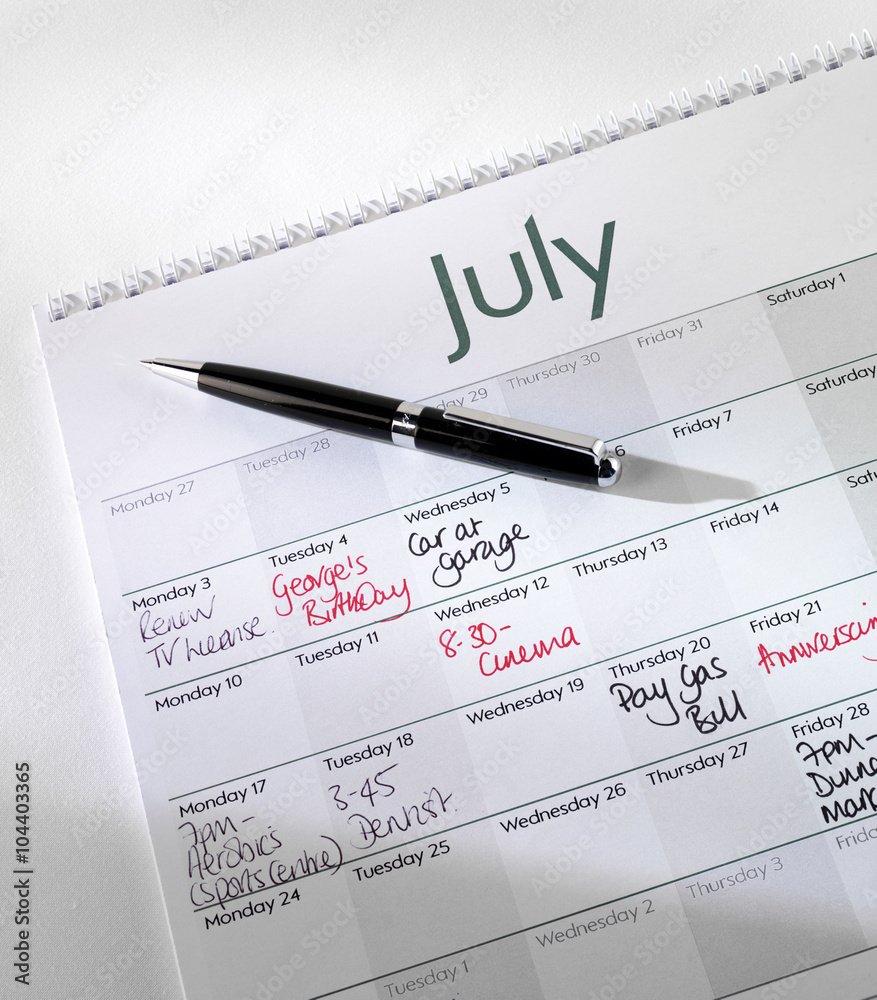 July
Monday 27
Tuesday 28
day 29
Thursday 30
Friday 31
Saturday 1
Monday 3
Renew
TV License.
Tuesday 4
George's
Birthday
Wednesday 5
Car at
garage
6
Friday 7
Saturday
Monday 10
Tuesday 11
Wednesday 12
8-30-
Cinema
Thursday 13
Friday 14
Satu
Monday 17
7pm-
Aerobics
(sports centre)
Tuesday 18
3-45
Dentist.
Wednesday 19
Thursday 20
Pay Gas
Bill
Friday 21
Monday 24
Tuesday 25
Wednesday 26
Thursday 27
Friday 28
7pm-
Tuesday 1
Wednesday 2
Thursday 3
Frida
Adobe Stock | #104403365